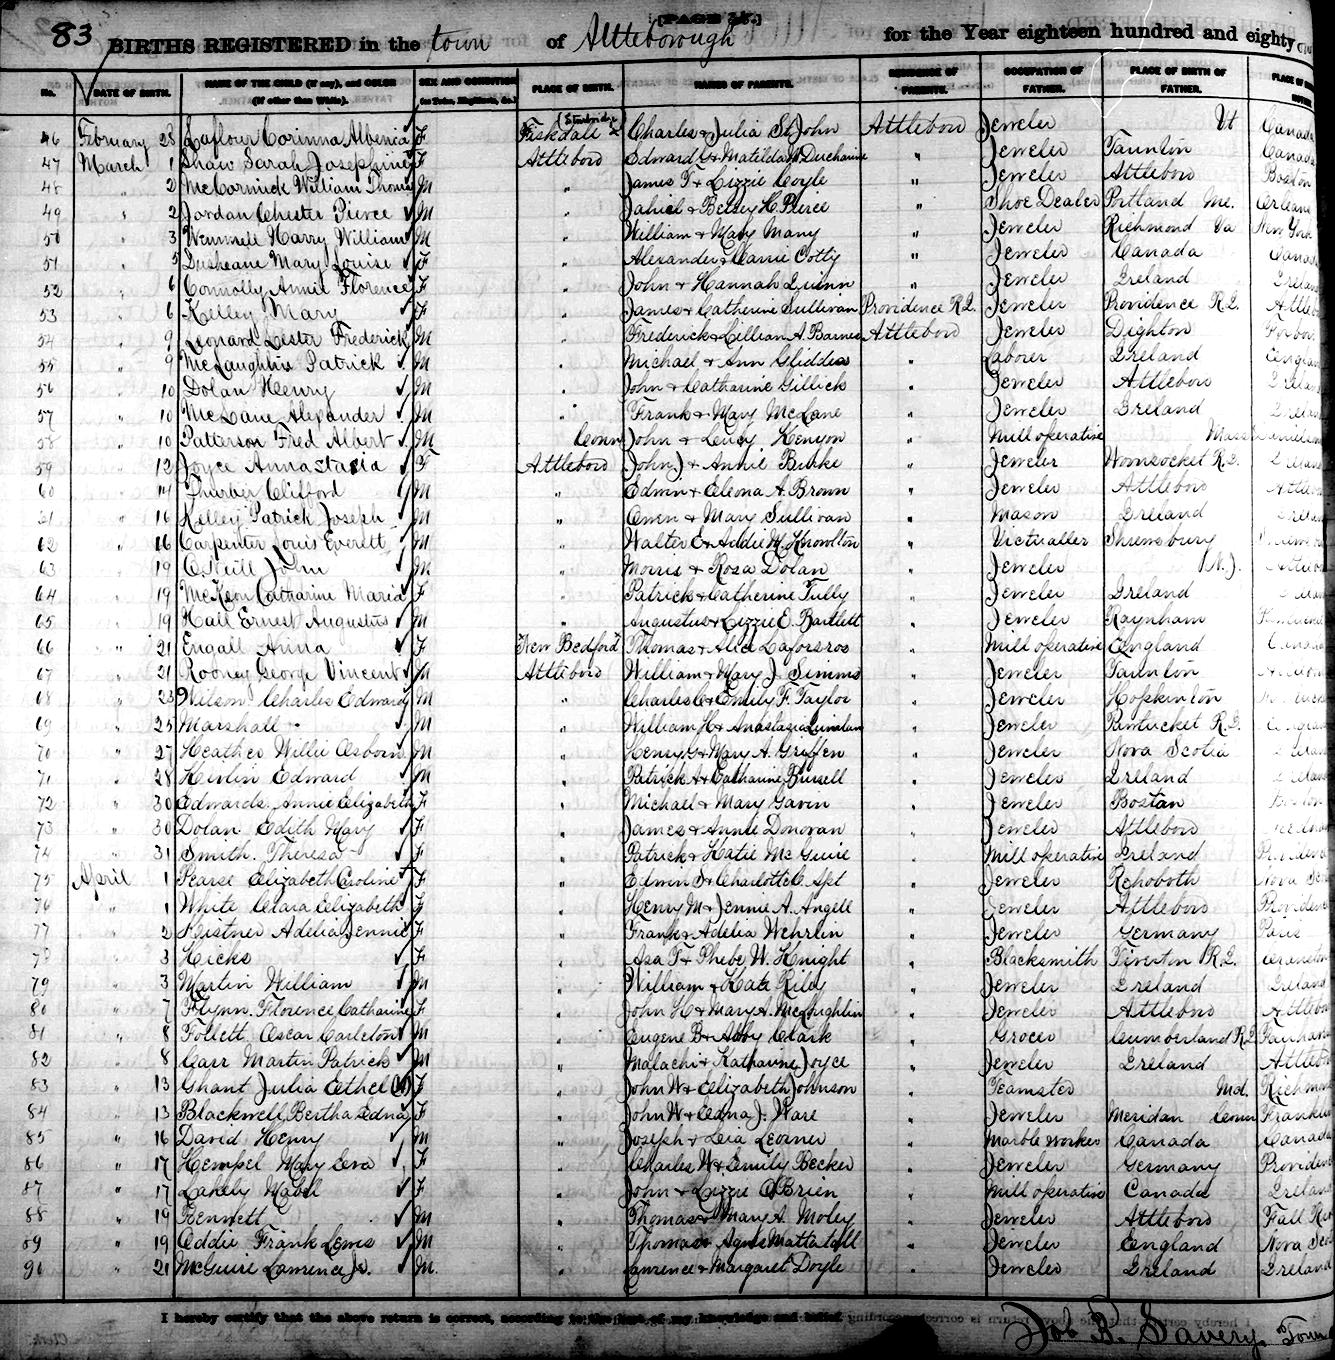 83
[PAGE 34.]
BIRTHS REGISTERED in the town of Attleborough for the Year eighteen hundred and eighty
No. DATE OF BIRTH. NAME OF THE CHILD (if any), and COLOR (if other than White). SEX AND CONDITION (as Twins, Illegitimate, &c.) PLACE OF BIRTH. NAMES OF PARENTS. RESIDENCE OF PARENTS. OCCUPATION OF FATHER. PLACE OF BIRTH OF FATHER. PLACE OF
46 February 28 Laflour Corinna Albenia F Fiskdale (Sturbridge) Charles & Julia St John Attleboro Jeweler Vt Canada
47 March 1 Shaw Sarah Josephine F Attleboro Edward G & Matilda Ducharme " Jeweler Taunton Canada
48 " 2 McCormick William Thomas M " James T & Lizzie Coyle " Jeweler Attleboro Boston
49 " 2 Jordan Chester Pierce M " Jahiel & Betsey H. Pierce " Shoe Dealer Portland Me. Orleans
50 " 3 Harry William M " William & Mary Many " Jeweler Richmond Va New York
51 " 5 Dusheane Mary Louise F " Alexander & Carrie Cotty " Jeweler Canada Canada
52 " 6 Connolly Annie Florence F " John & Hannah Quinn " Jeweler Ireland Ireland
53 " 6 Kelley Mary F " James & Catherine Sullivan Providence R.I. Jeweler Providence R.I. Attlebo
54 " 9 Leonard Lester Frederick M " Frederick & Lillian A. Barnes Attleboro Jeweler Dighton
55 " 9 McLaughlin Patrick M " Michael & Ann Glidden " Laborer Ireland Englan
56 " 10 Dolan Henry M " John & Catharine Gillick " Jeweler Attleboro Irelan
57 " 10 McLane Alexander M " Frank & Mary McLane " Jeweler Ireland Irelan
58 " 10 Patterson Fred Albert M Conn John & Lucy Kenyon " Mill operative Mass
59 " 12 Joyce Annastasia F Attleboro John J & Annie Burke " Jeweler Woonsocket R.I. Irelan
60 " 14 Thurber Clifford M " Edwin & Eleona A. Brown " Jeweler Attleboro Attleb
61 " 16 Kelley Patrick Joseph M " Owen & Mary Sullivan " Mason Ireland Irelan
62 " 16 Carpenter Louis Everett M " Walter E & Addie M. Knowlton " Victualler Shrewsbury
63 " 19 O'Neill John M " Morris & Rosa Dolan " Jeweler N.J. Attleb
64 " 19 McKeon Catharine Maria F " Patrick & Catherine Tully " Jeweler Ireland
65 " 19 Hall Ernest Augustus M " Augustus & Lizzie E. Bartlett " Jeweler Raynham
66 " 21 Engall Anna F New Bedford Thomas & Alice " Mill operative England
67 " 21 Rooney George Vincent M Attleboro William & Mary J. Simms " Jeweler Taunton
68 " 23 Wilson Charles Edward M " Charles C & Emily F. Taylor " Jeweler Hopkinton
69 " 25 Marshall - M " William H & Anastasia Quinlan " Jeweler Pawtucket R.I. Englan
70 " 27 Heather Willie Osborn M " Henry G & Mary A. Griffen " Jeweler Nova Scotia
71 " 28 Kevlin Edward M " Patrick H & Catharine Bussell " Jeweler Ireland
72 " 30 Edwards Annie Elizabeth F " Michael & Mary Gavin " Jeweler Boston Boston
73 " 30 Dolan Edith Mary F " James & Annie Donovan " Jeweler Attleboro
74 " 31 Smith. Theresa F " Patrick & Katie McGuire " Mill operative Ireland Providen
75 April 1 Pearse Elizabeth Caroline F " Edwin D & Charlotte C. Apt " Jeweler Rehoboth Nova Sco
76 " 1 White Clara Elizabeth F " Henry M & Jennie A. Angell " Jeweler Attleboro Providen
77 " 2 Keistner Adelia Jennie F " Frank & Adelia Wehrlin " Jeweler Germany Paris
78 " 3 Hicks F " Asa T & Phebe W. Knight " Blacksmith Tiverton R.I. Cranston
79 " 3 Martin William M " William & Kate Riley " Jeweler Ireland Ireland
80 " 7 Flynn. Florence Catharine F " John H & Mary A. McLoughlin " Jeweler Attleboro Attlebo
81 " 8 Follett Oscar Carleton M " Eugene B & Abby Clark " Grocer Cumberland R.I. Fairhave
82 " 8 Carr Martin Patrick M " Malachi & Katharine Joyce " Jeweler Ireland Attlebo
83 " 13 Ghant Julia Ethel F " John W & Elizabeth Johnson " Teamster Md. Richmo
84 " 13 Blackwell Bertha Edna F " John W & Edna J. Ware " Jeweler Meridan Conn Franklin
85 " 16 David Henry M " Joseph & Leia Leorner " Marble Worker Canada Canada
86 " 17 Hempel Mary Eva F " Charles W & Emily Becker " Jeweler Germany Providen
87 " 17 Lahely Mabel F " John & Lizzie O'Brien " Mill operative Canada Ireland
88 " 19 Bennett M " Thomas & Mary A. Moley " Jeweler Attleboro Fall Riv
89 " 19 Eddie Frank Lewis M " Thomas & Agnes Mattatall " Jeweler England Nova Sco
90 " 21 McGuire Lawrence Jr. M. " Lawrence & Margaret Doyle " Jeweler Ireland Ireland
I hereby certify that the above return is correct, according to the best of my knowledge and belief.
Job B. Savery, Town